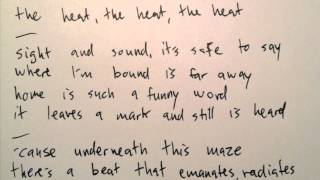 the heat, the heat, the heat
—
sight and sound, it's safe to say
where I'm bound is far away
home is such a funny word
it leaves a mark and still is heard
—
'cause underneath this maze
there's a beat that emanates, radiates